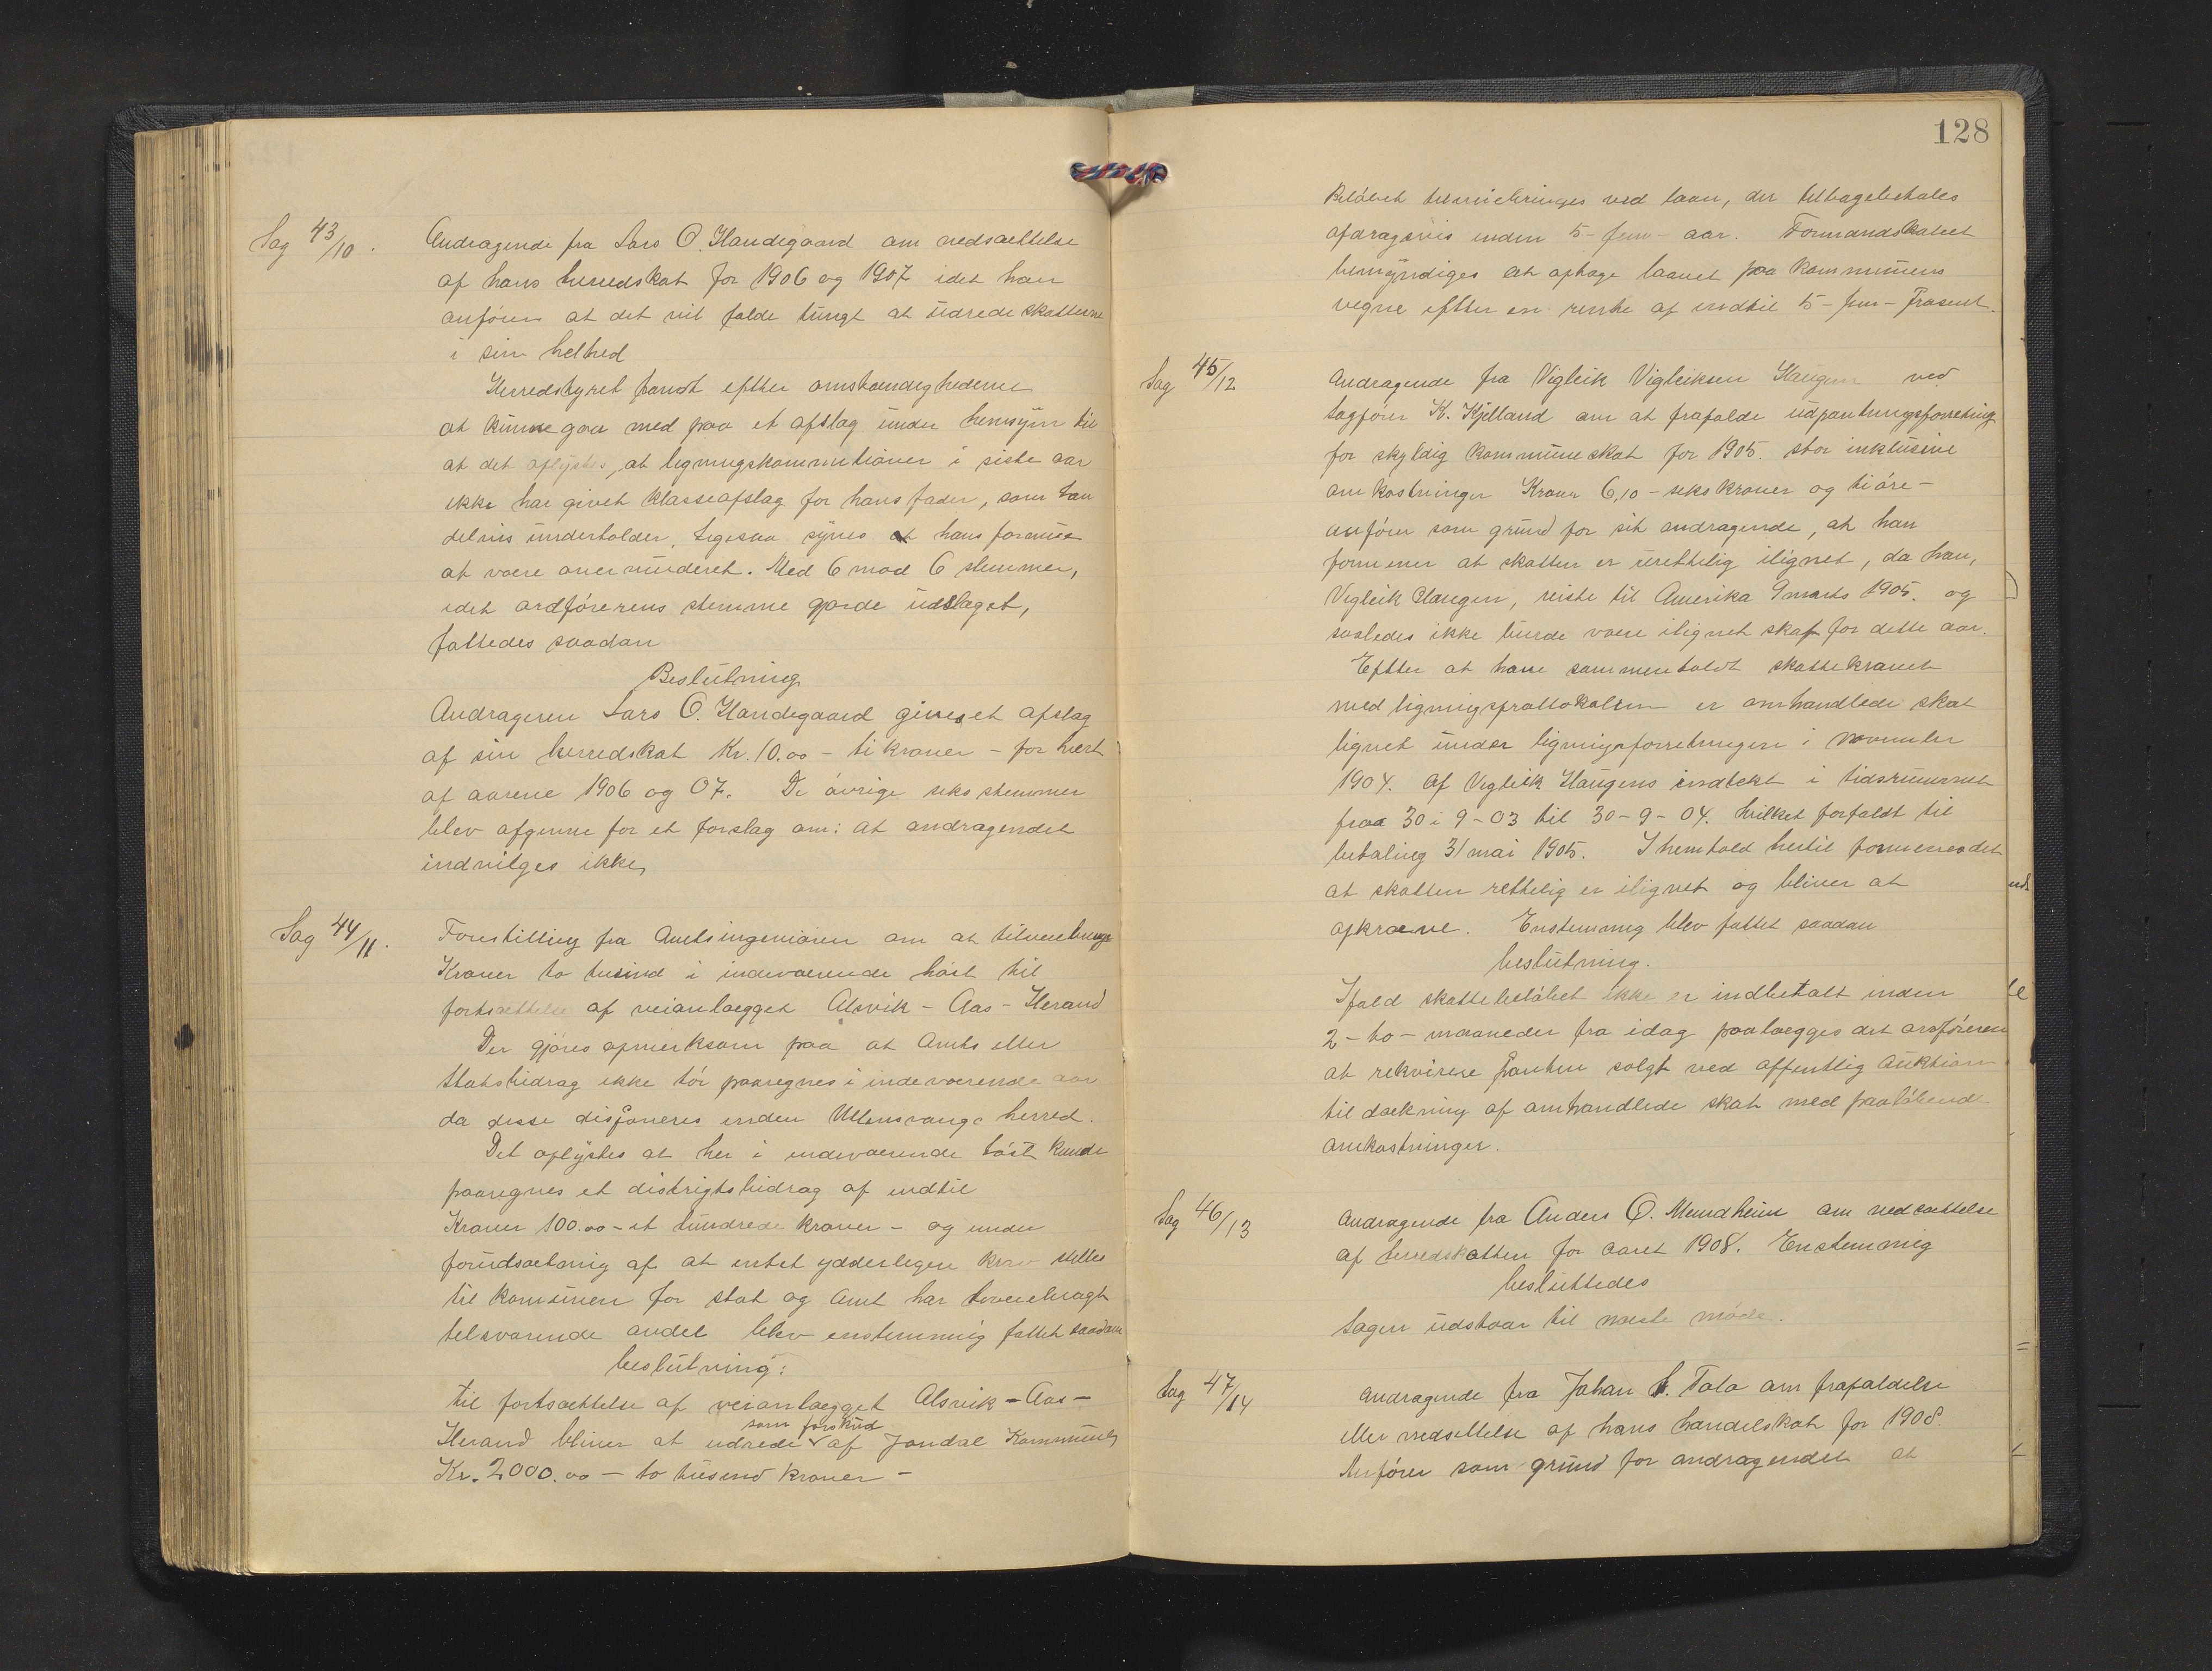 Sag 43/10. Andragende fra Lars O. Handegaard om nedsættelse
af hans herredskat for 1906 og 1907 idet han
anfører at det vil falde tungt at udrede skatterne
i sin helhed
Herredstyret fandt efter omstændighederne
at kunne gaa med paa et afslag under hensyn til
at det oplystes, at ligningskommitionen i siste aar
ikke har givet klasseafslag for hans fader, som han
delvis underholder. Ligesaa synes at hans formue
at være overvurderet. Med 6 mod 6 stemmer,
idet ordførerens stemme gjorde udslaget,
fattedes saadan
Beslutning
Andrageren Lars O. Handegaard gives et afslag
af sin herredskat Kr. 10.00 – ti kroner – for hvert
af aarene 1906 og 07. De øvrige seks stemmer
blev afgivne for et forslag om: at andragendet
indvilges ikke,
Sag 44/11. Forestilling fra Amtsingeniøren om at tilveiebringe
Kroner to tusind i indeværende høst til
fortsættelse af veianlægget Alsvik – Aas – Herand
Der gjøres opmerksom paa at Amts eller
Statsbidrag ikke tør paaregnes i indeværende aar
da disse disponeres inden Ullensvangs herred.
Det oplystes at her i indeværende høst kunde
paaregnes et distrigtsbidrag af indtil
Kroner 100.00 – et hundrede kroner – og under
forudsætning af at intet ydderligere krav stilles
til komunen for stat og Amt har tilveiebragt
tilsvarende andel blev enstemmig fattet saadan
beslutning:
Til fortsættelse af veianlægget Alsvik – Aas –
som forskud
Herand bliver at udrede af Jondal Kommune
Kr. 2000.00 – to tusend kroner –
128
Beløbet tilveiebringes ved laan, der tilbagebetales
afdragsvis inden 5 – fem – aar. Formandskabet
bemyndiges at optage laanet paa kommunens
vegne efter en rente af indtil 5 – fem – Prosent.
Sag 45/12 Andragende fra Vigleik Vigleiksen Haugen ved
Sagfører K. Kjelland om at frafalde udpantningsforretning
for skyldig kommuneskat for 1905. stor inklusive
omkostninger Kroner 6,10 – seks kroner og tiøre –
anfører som grund for sit andragende, at han
formener at skatten er urettelig ilignet, da han,
Vigleik Haugen, reiste til Amerika 9 marts 1905. og
saaledes ikke burde være ilignet skat for dette aar.
Efter at have sammenholdt skattekravet
med ligningsprottokollen er omhandlede skat
lignet under ligningsforretningen i november
1904. af Vigleik Haugens indtekt i tidsrummet
fraa 30 i 9 – 03 til 30 – 9 – 04. hvilket forfaldt til
betaling 31 mai 1905. I henhold hertil formenes det
at skatten rettelig er ilignet og bliver at
opkræve. Enstemmig blev fattet saadan
beslutning.
Ifald skattebeløbet ikke er indbetalt inden
2 – to – maaneder fra idag paalægges det ordføreren
at rekvirere Panten solgt ved offentlig Auktion
til dækning af omhandlede skat med paaløbende
omkostninger.
Sag 46/13 Andragende fra Anders O. Mundheim om nedsættelse
af herredskatten for aaret 1908. Enstemmig
besluttedes
Sagen udstaar til næste møde.
Sag 47/14 Andragende fra Johan S. Tolo om frafaldelse
eller nedsettelse af hans handelskat for 1908
Anfører som grund for andragendet at